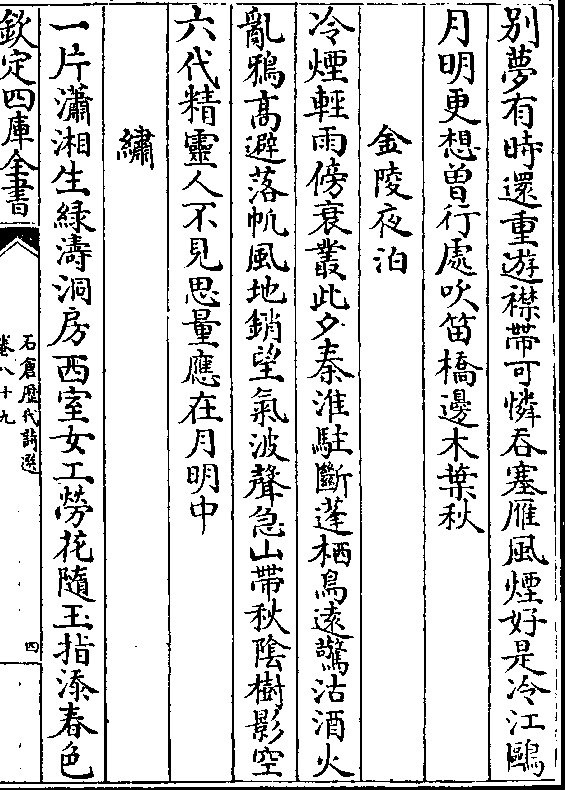 别夢有時還重遊襟帶可憐吞塞雁風煙好是冷江鷗
月明更想曽行處吹笛橋邊木葉秋
金陵夜泊
冷煙輕雨傍衰叢此夕秦淮駐斷蓬栖鳥遠驚沽酒火
亂鴉高避落帆風地銷望氣波聲急山帶秋陰樹影空
六代精靈人不見思量應在月明中
繡
一片瀟湘生緑濤洞房西室女工勞花隨玉指添春色
欽定四庫全書
石倉歴代詩選
卷八十九
四